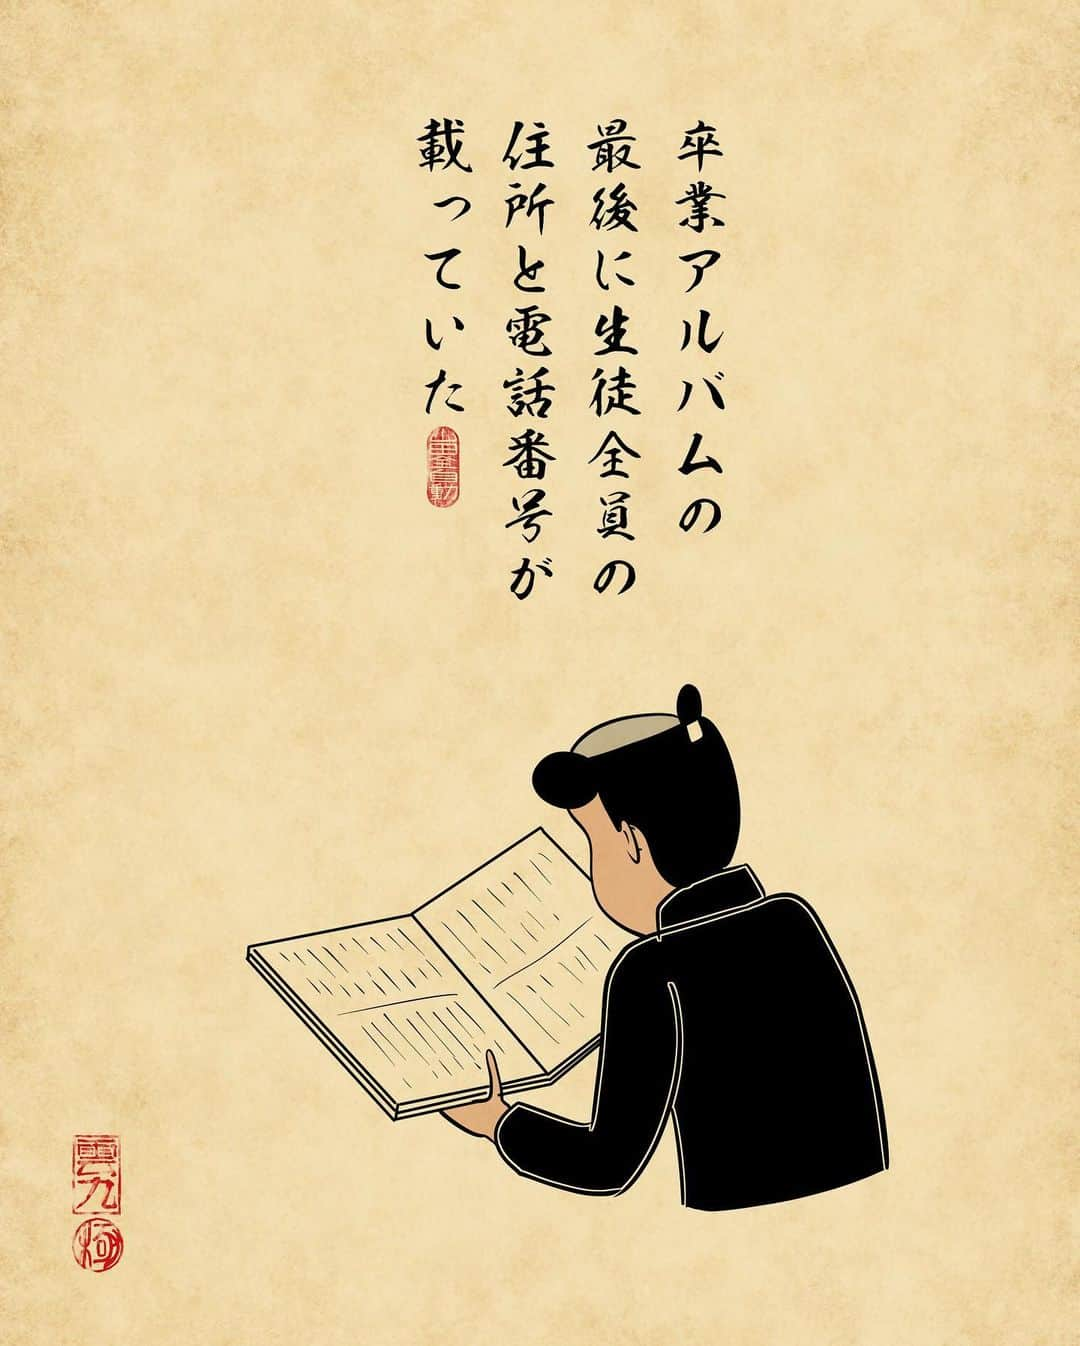 卒業アルバムの
最後に生徒全員の
住所と電話番号が
載っていた